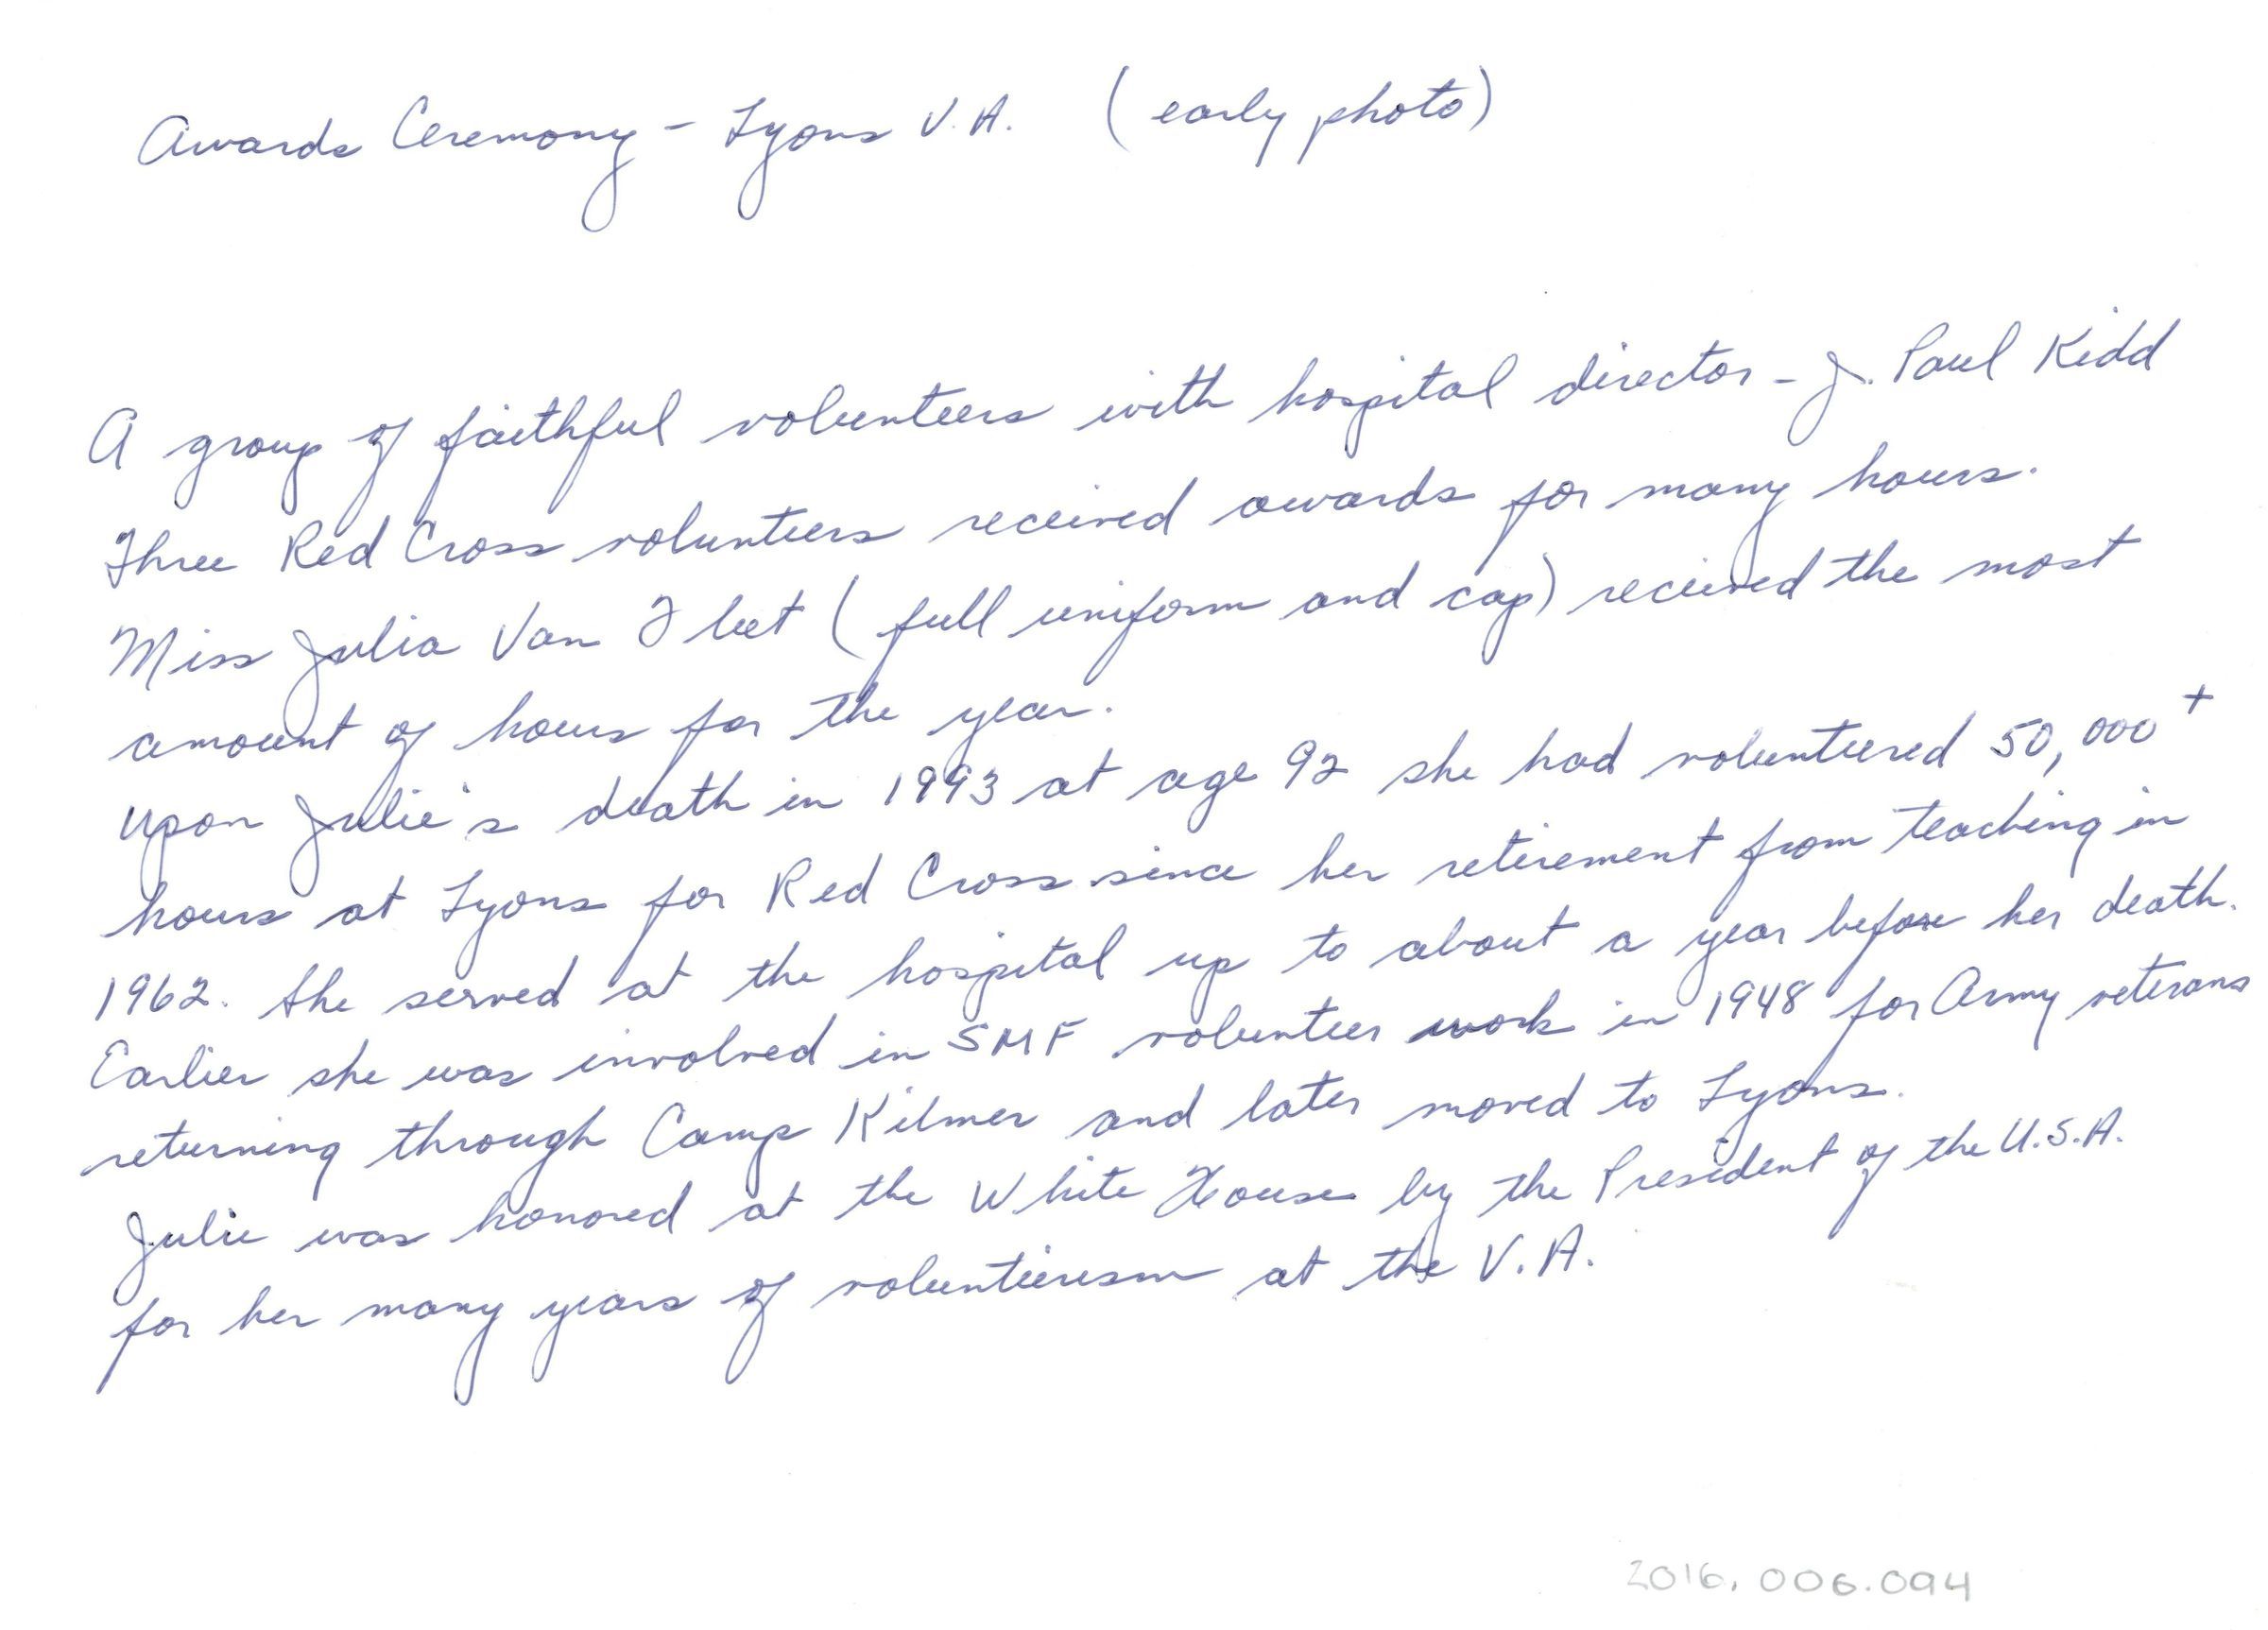 Awards Ceremony - Lyons V.A. (early photo)
A group of faithful volunteers with hospital director - J. Paul Kidd
Three Red Cross volunteers received awards for many hours.
Miss Julia Van Fleet (full uniform and cap) recieved the most
amount of hours for the year.
Upon Julie's death in 1993 at age 92 she had volunteered 50,000+
hours at Lyons for Red Cross since her retirement from teaching in
1962. She served at the hospital up to about a year before her death.
Earlier she was involved in SMF volunteer work in 1948 for Army veterans
returning through Camp Kilmer and later moved to Lyons.
Julie was honored at the White House by the President of the U.S.A.
for her many years of volunteerism at the V.A.
2016.006.094